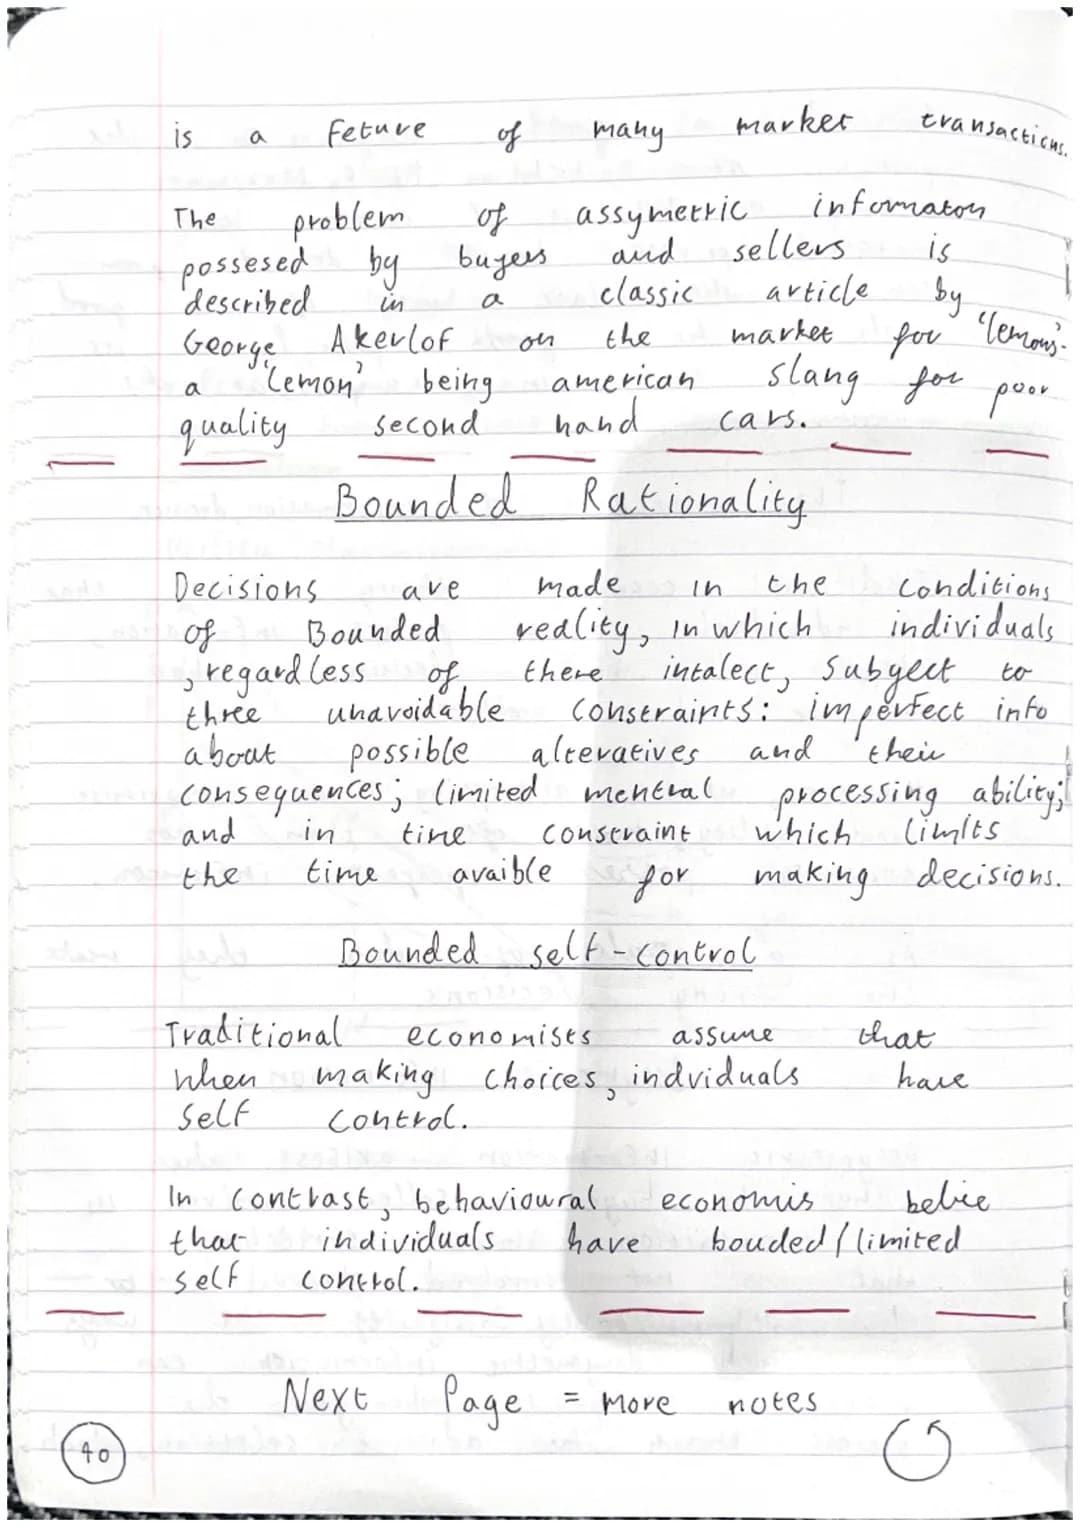 is a feture of many market transactions.
The problem of assymetric informaton
possesed by buyers and sellers is
described in a classic article by
George Akerlof on the market for 'lemons'-
a 'lemon' being american slang for poor
quality second hand cars.
Bounded Rationality
Decisions are made in the conditions
of Bounded reality, in which individuals
, regardless of there intalect, subyect to
three unavoidable constraints: imperfect info
about possible alteratives and their
consequences; limited mentral processing ability;
and in time constraint which limits
the time avaible for making decisions.
Bounded self-control
Traditional economists assume that
when making choices, indviduals have
self control.
In contrast, behavioural economis belie
that individuals have bouded/limited
self control.
Next Page = more notes
40